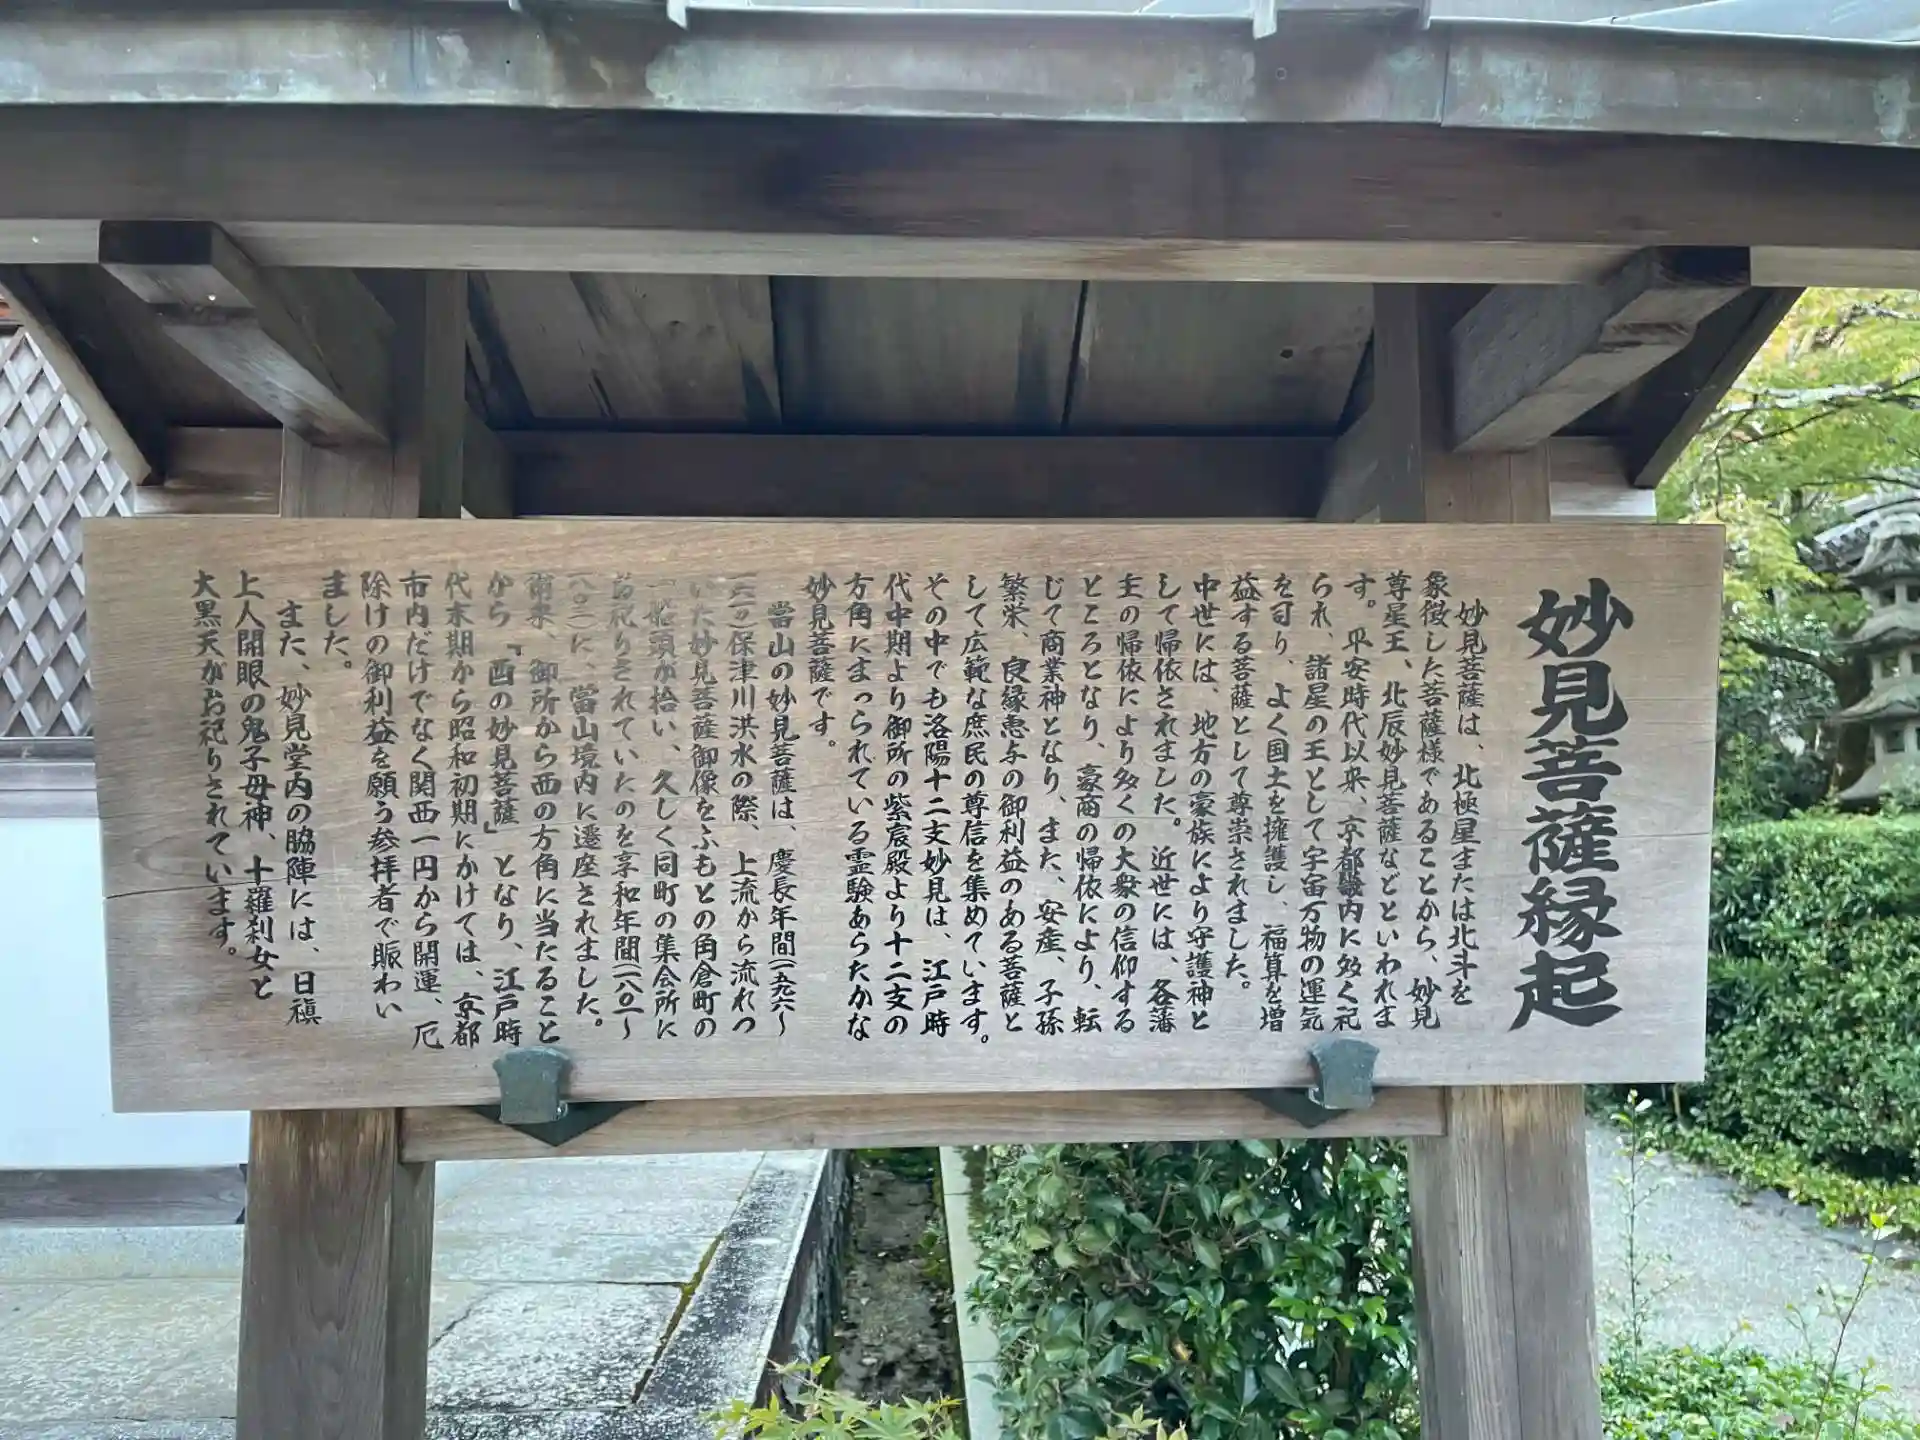 妙見菩薩縁起
妙見菩薩は、北極星または北斗を
象徴した菩薩様であることから、妙見
尊星王、北辰妙見菩薩などといわれま
す。平安時代以来、京都畿内に效く祀
られ、諸星の王として宇宙万物の運気
を司り、よく国土を擁護し、福算を増
益する菩薩として尊崇されました。
中世には、地方の豪族により守護神と
して帰依されました。近世には、各藩
主の帰依により多くの大衆の信仰する
ところとなり、豪商の帰依により、転
じて商業神となり、また、安産、子孫
繁栄、良縁恵与の御利益のある菩薩と
して広範な庶民の尊信を集めています。
その中でも洛陽十二支妙見は、江戸時
代中期より御所の紫宸殿より十二支の
方角にまつられている霊験あらたかな
妙見菩薩です。
當山の妙見菩薩は、慶長年間(一五九六〜
保津川洪水の際、上流から流れつ
いた妙見菩薩御像をふもとの角倉町の
船頭が拾い、久しく同町の集会所に
お祀りされていたのを享和年間(一八〇一〜
一八〇三)に、當山境内に遷座されました。
爾来、御所から西の方角に当たること
から『酉の妙見菩薩』となり、江戸時
代末期から昭和初期にかけては、京都
市内だけでなく関西一円から開運、厄
除けの御利益を願う参拝者で賑わい
ました。
また、妙見堂内の脇陣には、日禛
上人開眼の鬼子母神、十羅刹女と
大黒天がお祀りされています。